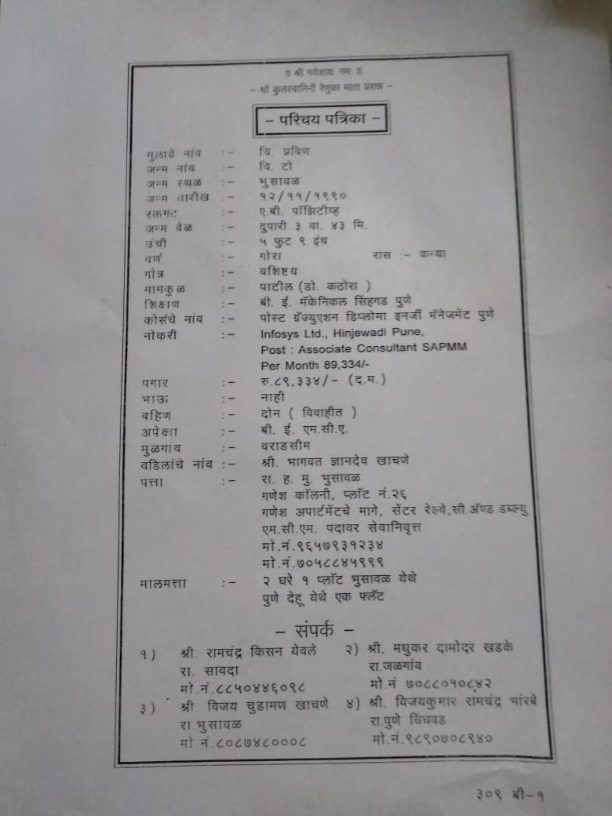 ॥ श्री गणेशाय नमः ॥
- श्री कुलस्वामिनी रेणुका माता प्रसन्न -
- परिचय पत्रिका -
मुलाचे नांव :- चि. प्रविण
जन्म नांव :- चि. टो
जन्म स्थळ :- भुसावळ
जन्म तारीख :- १२/११/१९९०
रक्तगट :- ए.बी. पॉझिटीव्ह
जन्म वेळ :- दुपारी ३ वा. ४३ मि.
उंची :- ५ फुट ९ इंच
वर्ण :- गोरा रास :- कन्या
गोत्र :- वशिष्टय
मामकुळ :- पाटील (डो. कठोरा )
शिक्षाण :- बी. ई. मॅकेनिकल सिंहगड पुणे
कोर्सचे नांव :- पोस्ट ग्रॅज्युएशन डिप्लोमा इनर्जी मॅनेजमेंट पुणे
नोकरी :- Infosys Ltd., Hinjewadi Pune,
Post : Associate Consultant SAPMM
Per Month 89,334/-
पगार :- रु.८९,३३४/- (द.म.)
भाऊ :- नाही
बहिण :- दोन ( विवाहीत )
अपेक्षा :- बी. ई. एम.सी.ए.
मुळगांव :- वराडसीम
वडिलांचे नांव :- श्री. भागवत ज्ञानदेव खाचणे
पत्ता :- रा. ह. मु. भुसावळ
गणेश कॉलनी, प्लॉट नं.२६
गणेश अपार्टमेंटचे मागे, सेंटर रेल्वे,सी.ॲण्ड.डब्ल्यु
एम.सी.एम. पदावर सेवानिवृत्त
मो.नं.९६५७९३१२३४
मो.नं.७०५८८४५९९९
मालमत्ता :- २ घरे १ प्लॉट भुसावळ येथे
पुणे देहू येथे एक फ्लॅट
- संपर्क -
१) श्री. रामचंद्र किसन येवले
रा. सावदा
मो.नं.८८५०४४६०९८
२) श्री. मधुकर दामोदर खडके
रा.जळगांव
मो.नं ७०८८०१०८४२
३) श्री. विजय चुडामण खाचणे
रा.भुसावळ
मो.नं.८०८७४८०००८
४) श्री. विजयकुमार रामचंद्र भारंबे
रा.पुणे चिंचवड
मो.नं.९८९०७०८९४०
३०९ बी-१